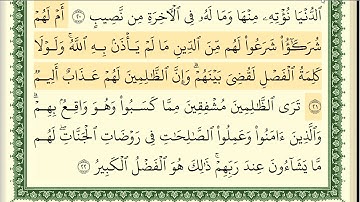 ٱلدُّنۡيَا نُؤۡتِهِۦ مِنۡهَا وَمَا لَهُۥ فِي ٱلۡأٓخِرَةِ مِن نَّصِيبٍ ٢٠ أَمۡ لَهُمۡ
شُرَكَٰٓؤُاْ شَرَعُواْ لَهُم مِّنَ ٱلدِّينِ مَا لَمۡ يَأۡذَنۢ بِهِ ٱللَّهُۚ وَلَوۡلَا
كَلِمَةُ ٱلۡفَصۡلِ لَقُضِيَ بَيۡنَهُمۡۗ وَإِنَّ ٱلظَّٰلِمِينَ لَهُمۡ عَذَابٌ أَلِيمٞ
٢١ تَرَى ٱلظَّٰلِمِينَ مُشۡفِقِينَ مِمَّا كَسَبُواْ وَهُوَ وَاقِعُۢ بِهِمۡۗ
وَٱلَّذِينَ ءَامَنُواْ وَعَمِلُواْ ٱلصَّٰلِحَٰتِ فِي رَوۡضَاتِ ٱلۡجَنَّاتِۖ لَهُم
مَّا يَشَآءُونَ عِندَ رَبِّهِمۡۚ ذَٰلِكَ هُوَ ٱلۡفَضۡلُ ٱلۡكَبِيرُ ٢٢